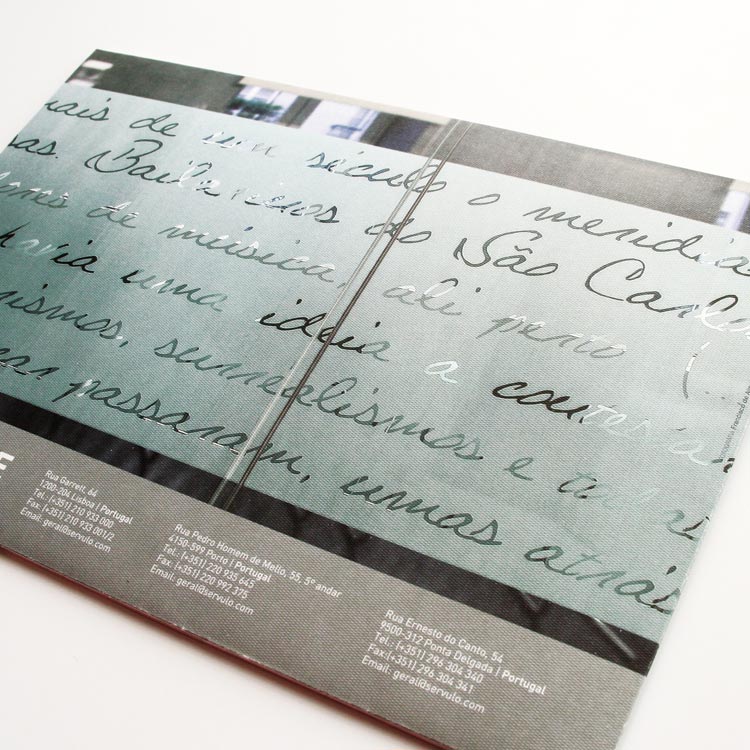 mais de um século o meridia
Bailarinos do São Carlos
de música, ali perto (...
havia uma ideia a contestar
nismos, surrealismos e
passaram, umas atrás
Francisco de
Rua Garrett, 64
1200-204 Lisboa | Portugal
Tel.: (+351) 210 933 000
Fax: (+351) 210 933 001/2
Email: geral@servulo.com
Rua Pedro Homem de Mello, 55, 5º andar
4150-599 Porto | Portugal
Tel.: (+351) 220 935 645
Fax: (+351) 220 992 375
Email: geral@servulo.com
Rua Ernesto do Canto, 54
9500-312 Ponta Delgada | Portugal
Tel.: (+351) 296 304 340
Fax:(+351) 296 304 341
Email: geral@servulo.com